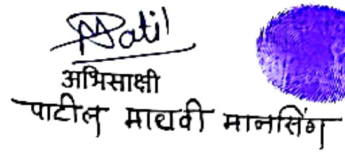 Patil
अभिसाक्षी
पाटील माधवी मानसिंग